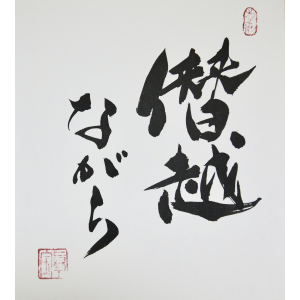 僭越
ながら